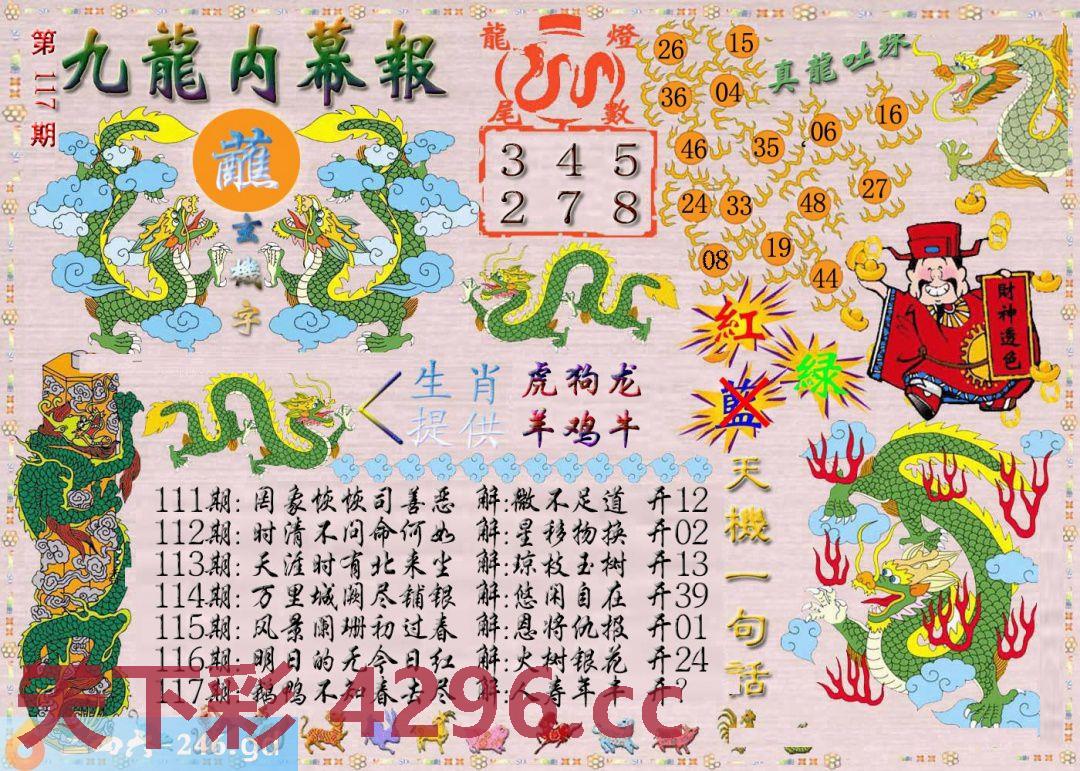 第117期
九龍内幕報
蘸
玄機字
龍燈
尾數
3 4 5
2 7 8
真龍吐珠
26 15
36 04
46 35 06 16
24 33 48 27
08 19 44
財神透色
紅
綠
藍
生肖
提供
虎狗龙
羊鸡牛
天機一句话
111期: 罔象恢恢司善恶 解:微不足道 开12
112期: 时清不问命何如 解:星移物换 开02
113期: 天涯时有北来尘 解:琼枝玉树 开13
114期: 万里城阙尽铺银 解:悠闲自在 开39
115期: 风景阑珊初过春 解:恩将仇报 开01
116期: 明日的无今日红 解:火树银花 开24
117期: 鹅鸭不知春去尽 解:人寿年丰 开?
天下彩 4296.cc
=246.gd